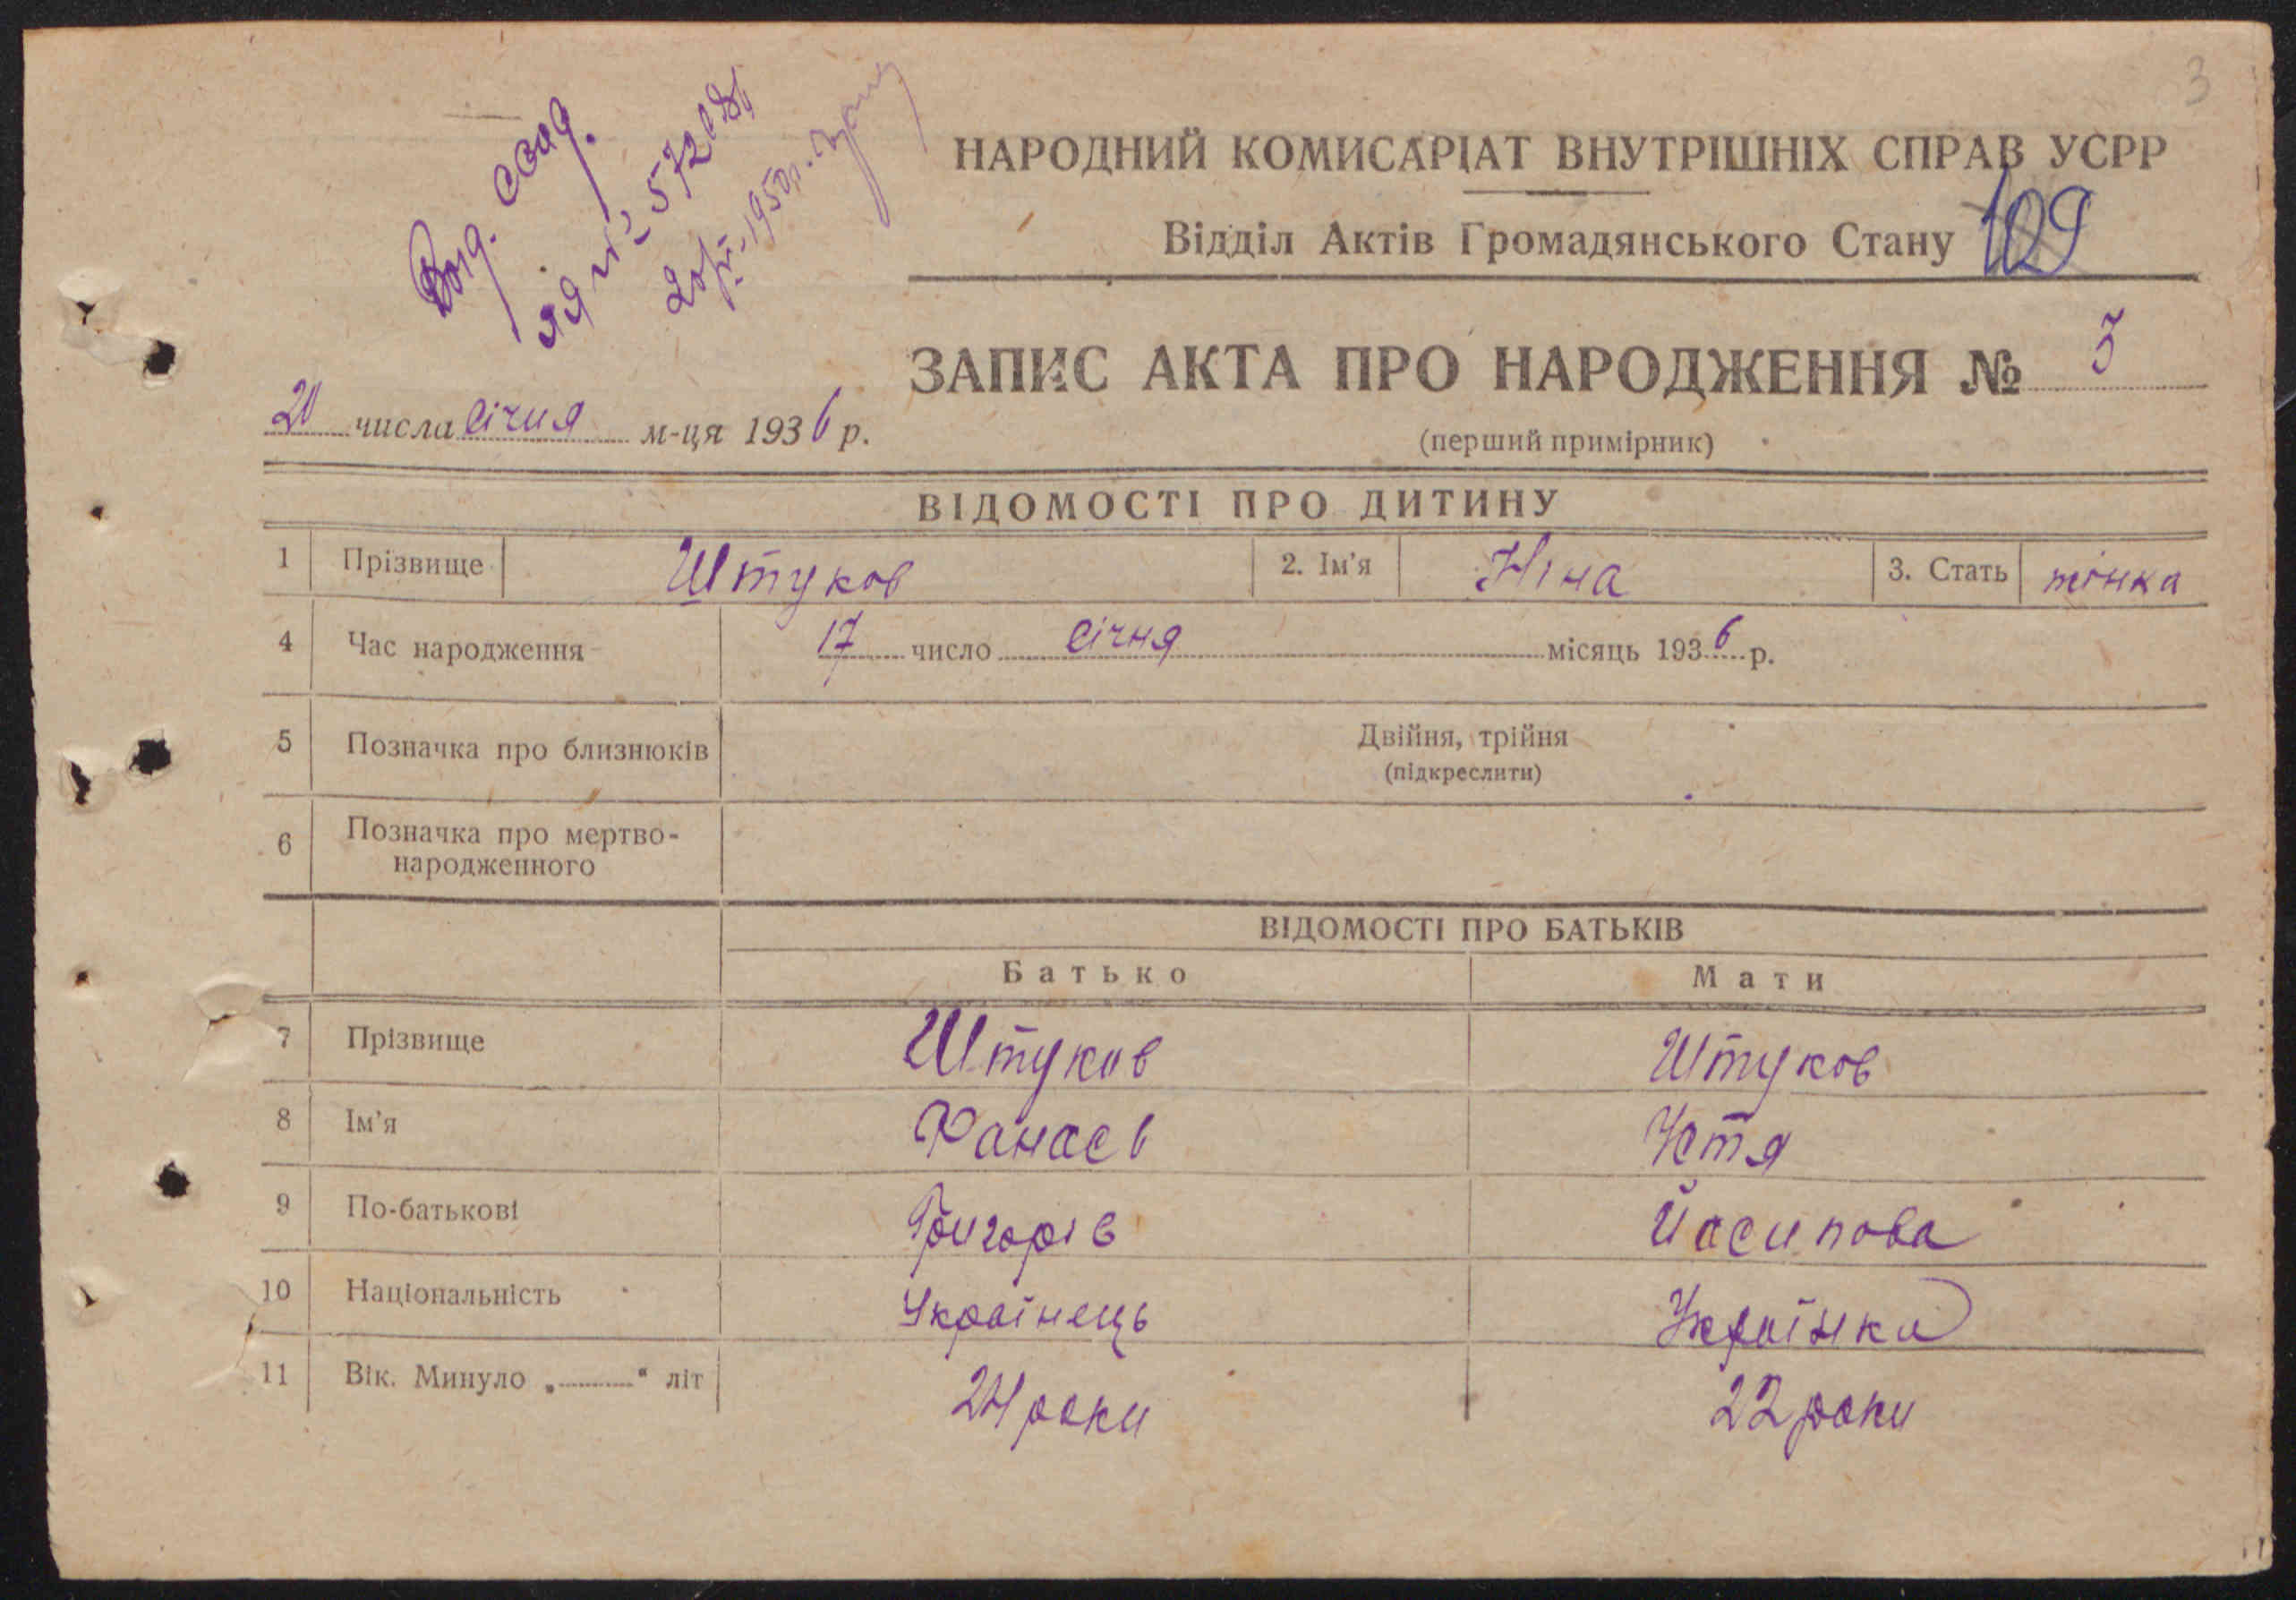 3
НАРОДНИЙ КОМИСАРІАТ ВНУТРІШНІХ СПРАВ УСРР
Відділ Актів Громадянського Стану 109
Вид. свид.
ЯЯ № 572081
20/VI-1950р.
ЗАПИС АКТА ПРО НАРОДЖЕННЯ № 3
20 числа січня м-ця 1936 р.
(перший примірник)
ВІДОМОСТІ ПРО ДИТИНУ
1 Прізвище Штуков 2. Ім'я Ніна 3. Стать жінка
4 Час народження 17 число січня місяць 1936 р.
5 Позначка про близнюків Двійня, трійня
(підкреслити)
6 Позначка про мертво-
народженного
ВІДОМОСТІ ПРО БАТЬКІВ
Батько Мати
7 Прізвище Штуков Штуков
8 Ім'я Фанасів Устя
9 По-батькові Григорів Йосипова
10 Національність Українець Українка
11 Вік. Минуло „ “ літ 24 роки 22 роки